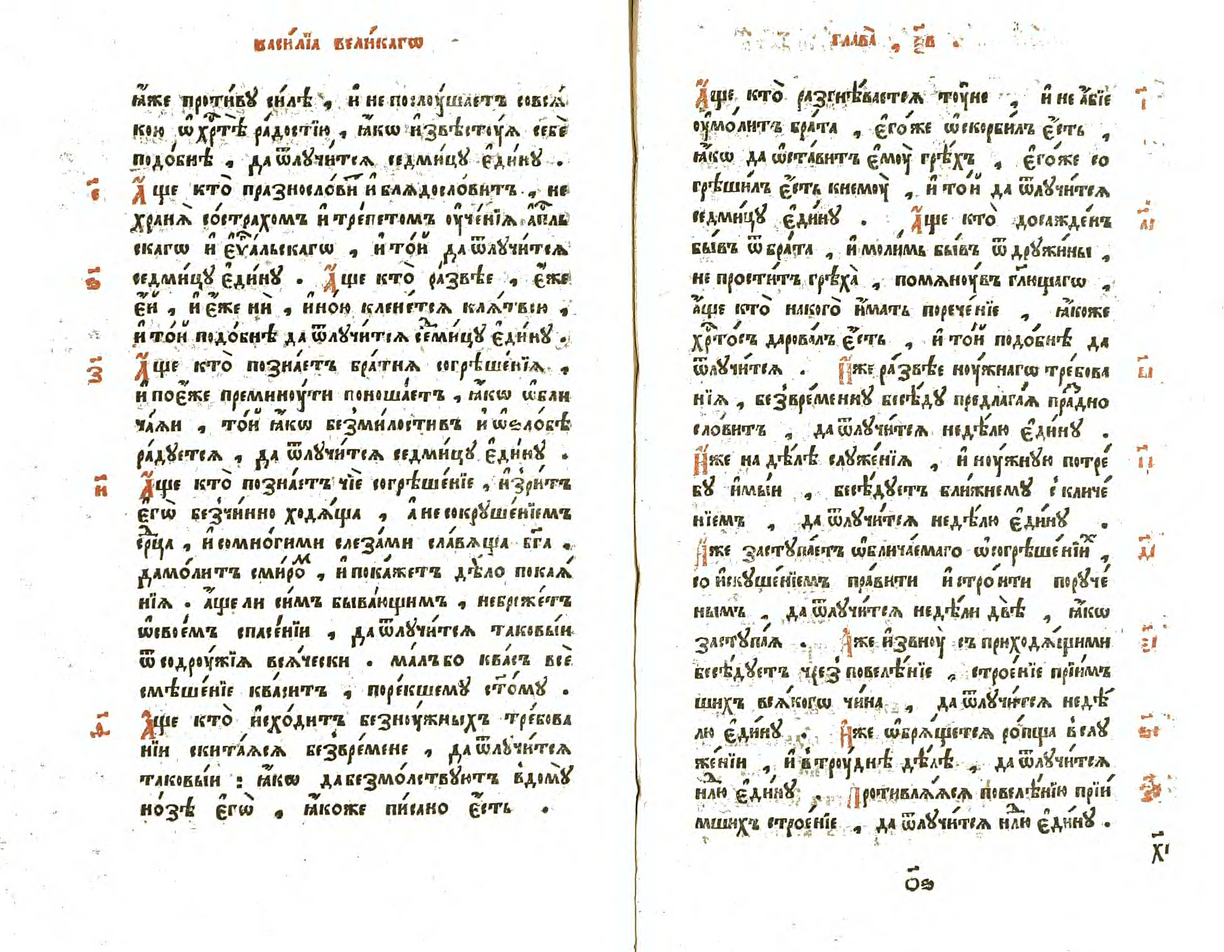 васи́лїа вели́кагѡ
ꙗ҆́же проти́вꙋ си́лѣ , и҆ не послоꙋ́шаетъ совсѧ́
кою ѡ҆ хрⷭ҇тѣ ра́достїю , ꙗ҆́кѡ и҆звѣ́стоуѧ себѐ
подо́бнѣ , да ѿлꙋчи́тсѧ седми́цꙋ є҆ди́нꙋ .
є҃
А҆́ще кто̀ празнослови́ и҆ блѧдослови́тъ , не
хранѧ̀ со́страхомъ и҆ тре́петомъ оу҆че́нїѧ а҆пⷭ҇ль
скагѡ и҆ є҆ѵⷢ҇а́льскагѡ , и҆ то́й да ѿлꙋчи́тсѧ
седми́цꙋ є҆ди́нꙋ . А҆́ще кто̀ ра́звѣе , є҆́же
ѕ҃
є҆́й , и҆ є҆́же нѝ , и҆но́ю клене́тсѧ клѧ́твою ,
и҆ то́й подо́бнѣ да ѿлꙋчи́тсѧ сеⷣми́цꙋ є҆ди́нꙋ .
з҃
А҆́ще кто̀ позна́етъ бра́тнѧ согрѣше́нїѧ ,
и҆ пое҆́же преминоꙋ́ти поноша́етъ , ꙗ҆́кѡ ѡ҆бли
ча́ѧи , то́й ꙗ҆́кѡ безми́лостивъ и҆ ѡ҆ѕло́бѣ
ра́дꙋетсѧ , да ѿлꙋчи́тсѧ седми́цꙋ є҆ди́нꙋ .
и҃
А҆́ще кто̀ позна́етъ чїѐ согрѣше́нїе , и҆ зри́тъ
є҆гѡ̀ безчи́нно ходѧ́ща , а҆ не сокрꙋше́нїемъ
срⷣца , и҆ со мно́гими слеза́ми сла́вѧща бг҃а .
да мо́литъ смиⷬ҇ро , и҆ пока́жетъ дѣ́ло покаѧ́
нїѧ . а҆́ще ли си́мъ быва́ющимъ , небреже́тъ
ѡ҆ свое́мъ спасе́нїи , да ѿлꙋчи́тсѧ таковы́и
ѿ содроꙋ́жїѧ всѧ́чески . ма́лъ бо ква́съ всѐ
смѣше́нїе ква́ситъ , поре́кшемꙋ ст҃о́мꙋ .
ѳ҃
А҆́ще кто̀ и҆схо́дитъ безноꙋ́жныхъ тре́бова
нїи скита́ѧсѧ безвре́мене , да ѿлꙋчи́тсѧ
таковы́и : ꙗ҆́кѡ да безмо́лствꙋютъ в до́мꙋ
но́зѣ є҆гѡ̀ , ꙗ҆́коже пи́сано є҆́сть .
глава̀ , ѯ҃в .
А҆́ще кто̀ разгнѣ́ваетсѧ тоꙋ́не , и҆ не а҆́бїе
і҃
оу҆мо́литъ бра́та , є҆го́же ѡ҆скорби́лъ є҆́сть ,
ꙗ҆́кѡ да ѡ҆ста́витъ є҆моꙋ̀ грѣ́хъ , є҆го́же со
грѣши́лъ є҆́сть к немоꙋ̀ , и҆ то́й да ѿлꙋчи́тсѧ
седми́цꙋ є҆ди́нꙋ . А҆́ще кто̀ досажде́нъ
а҃і
бы́въ ѿ бра́та , и҆ моли́мь бы́въ ѿ дрꙋжи́ны ,
не прости́тъ грѣха̀ , помѧноꙋ́въ гл҃ющагѡ ,
а҆́ще кто̀ накого̀ и҆́мать порече́нїе , ꙗ҆́коже
хрⷭ҇то́съ дарова́лъ є҆́сть , и҆ то́й подо́бнѣ да
ѿлꙋчи́тсѧ . И҆́же ра́звѣе ноꙋ́жнагѡ тре́бова
в҃і
нїѧ , безвре́меннꙋ бесѣ́дꙋ предлага́ѧ пра́дно
слови́тъ , да ѿлꙋчи́тсѧ недѣ́лю є҆ди́нꙋ .
И҆́же на дѣ́лѣ слꙋже́нїѧ , и҆ ноꙋ́жнꙋю потре́
г҃і
бꙋ и҆мы́и , бесѣ́дꙋетъ бли́жнемꙋ с̾ кличе́
нїемъ , да ѿлꙋчи́тсѧ недѣ́лю є҆ди́нꙋ .
И҆́же застꙋпа́етъ ѡ҆блича́емаго ѡ҆ согрѣше́нїиⷯ ,
д҃і
со и҆скꙋше́нїемъ пра́вити и҆ стро́ити порꙋче́
нымъ , да ѿлꙋчи́тсѧ недѣ́ли двѣ̀ , ꙗ҆́кѡ
застꙋпа́ѧ . И҆́же и҆звноꙋ̀ съ приходѧ́щими
є҃і
бесѣ́дꙋетъ чрез̾ повелѣ́нїе , строе́нїе прїи́мъ
шихъ всѧ́когѡ чи́на , да ѿлꙋчи́тсѧ недѣ́
лю є҆ди́нꙋ . И҆́же ѡ҆брѧ́щетсѧ ро́пща в слꙋ
ѕ҃і
же́нїи , и҆ в троꙋ́днѣ дѣ́лѣ , да ѿлꙋчи́тсѧ
нлⷣю є҆ди́нꙋ . Противлѧ́ѧсѧ повелѣ́нїю прїи́
з҃і
мшихъ строе́нїе , да ѿлꙋчи́тсѧ нлⷣю є҆ди́нꙋ .
х҃і
о҃ѳ